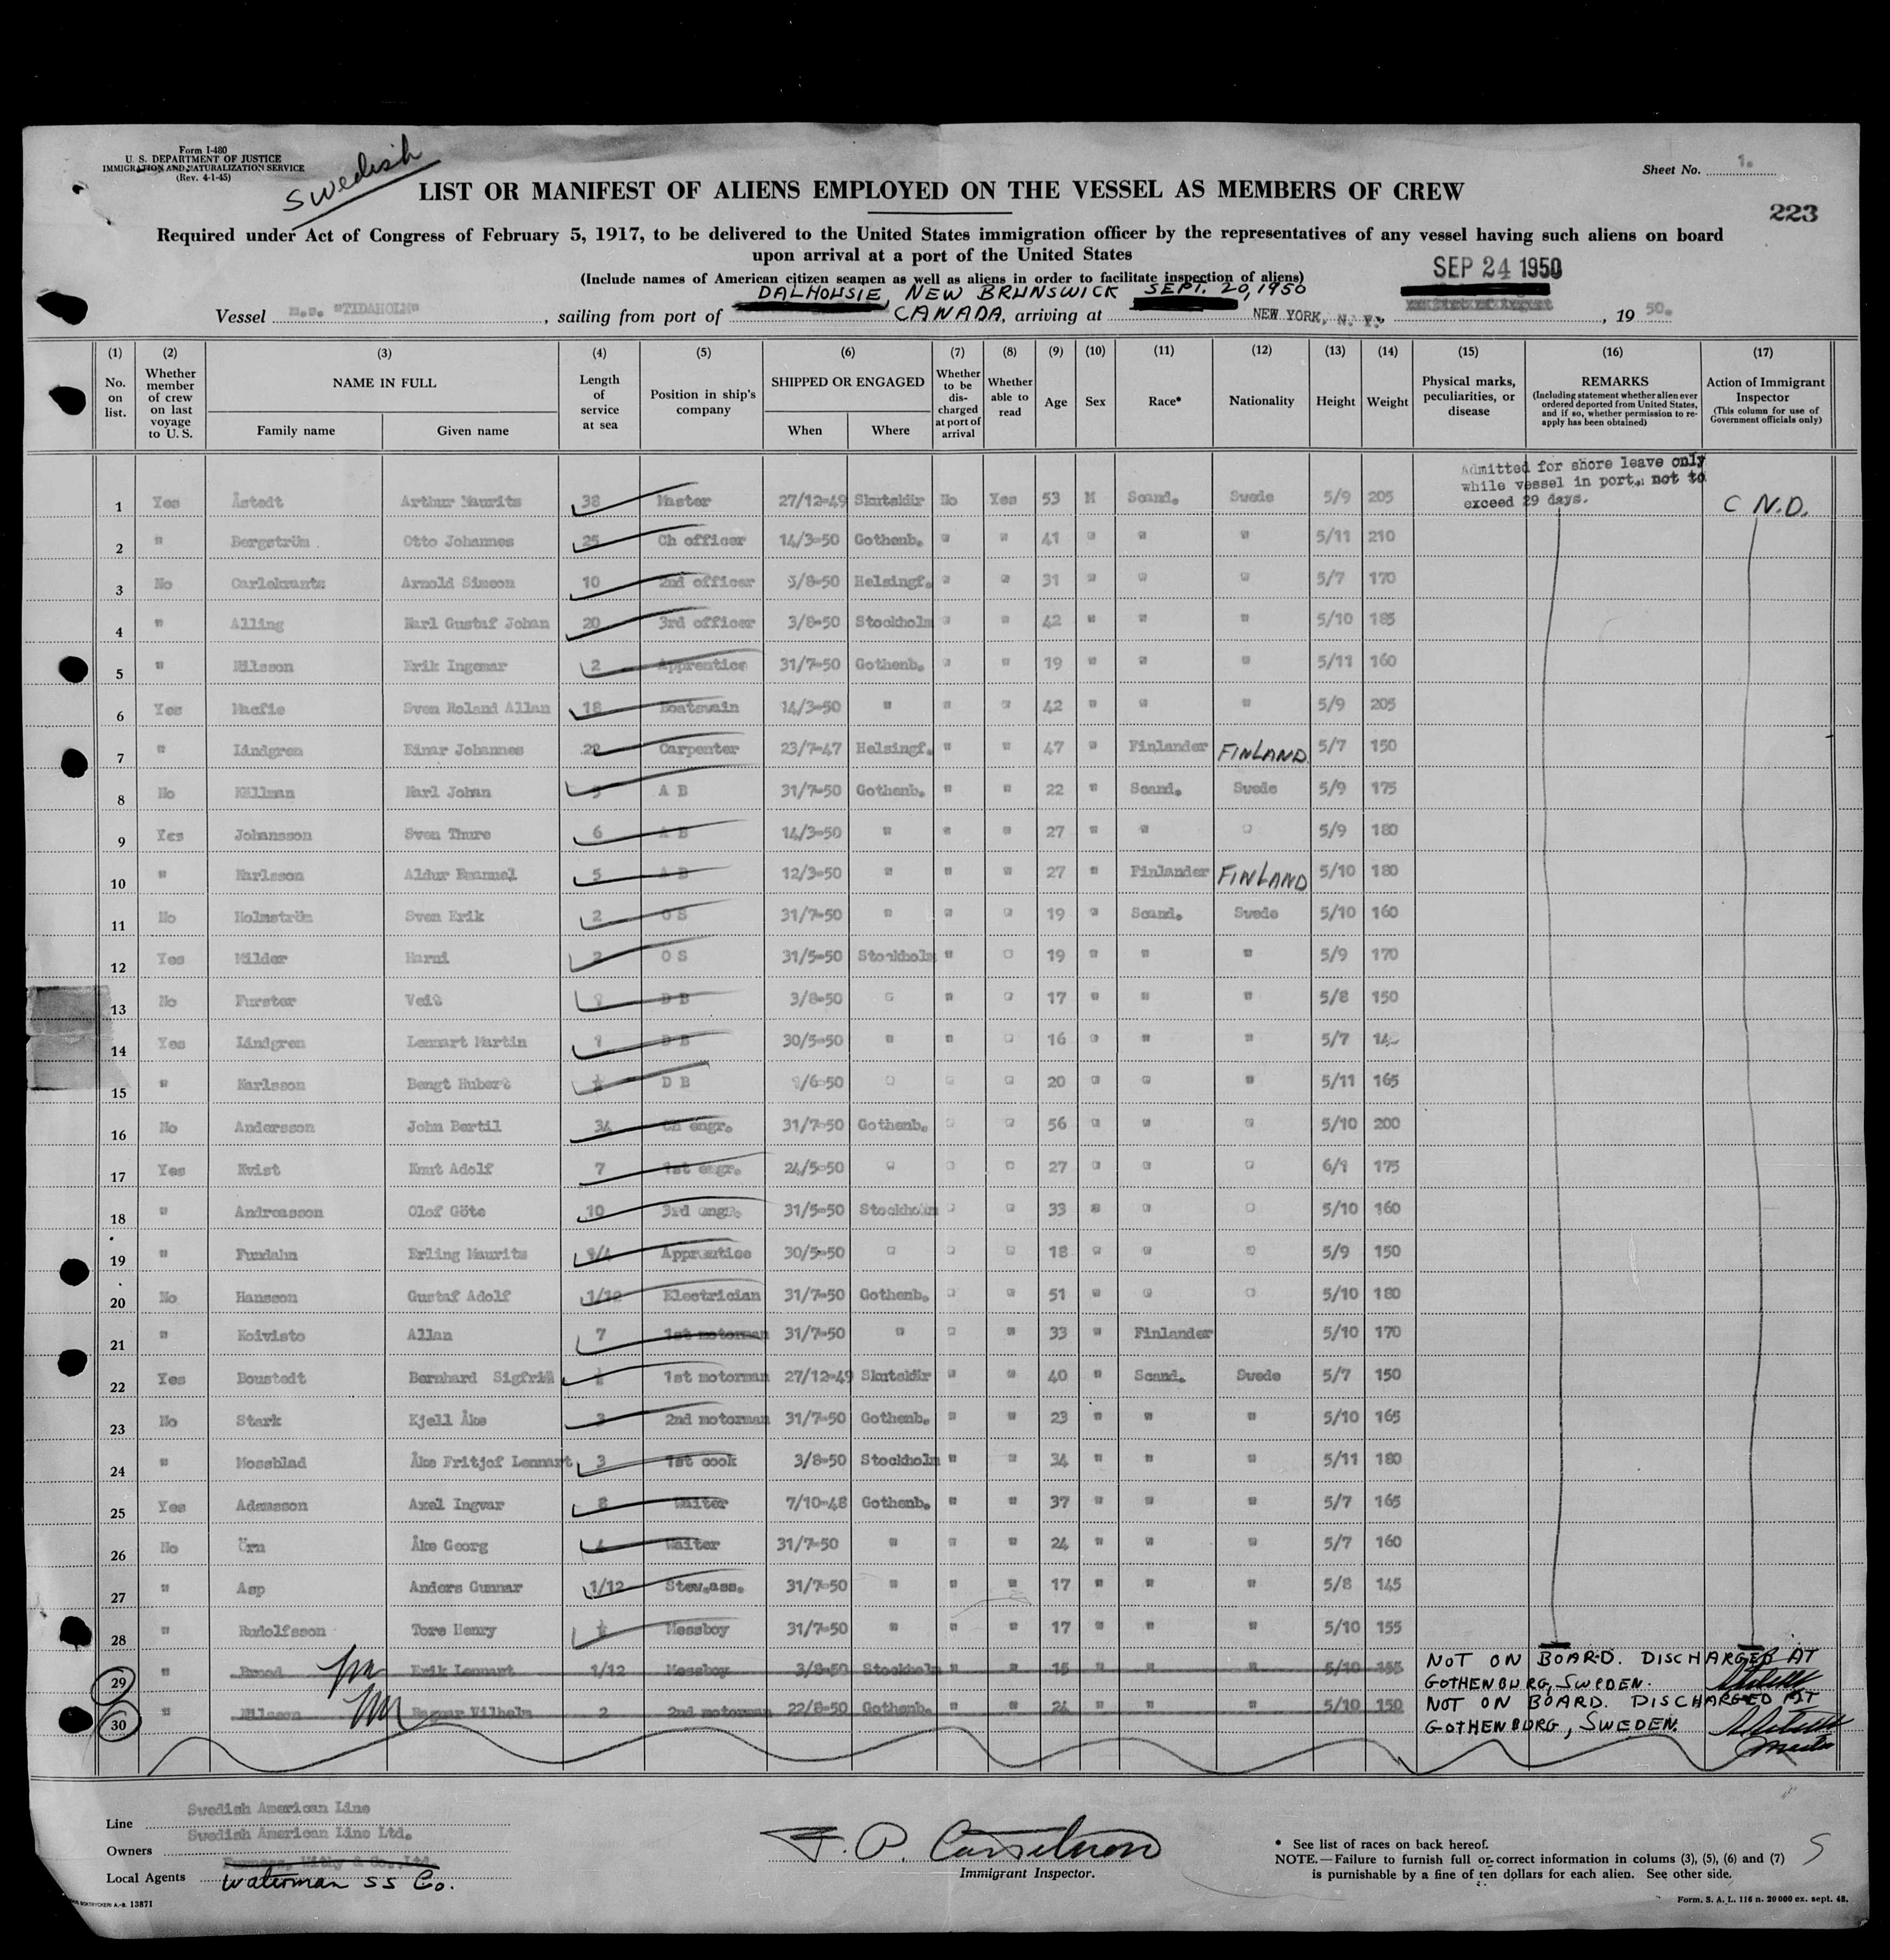 Form I-480
U. S. DEPARTMENT OF JUSTICE
IMMIGRATION AND NATURALIZATION SERVICE
(Rev. 4-1-45)
Swedish
Sheet No. 1.
LIST OR MANIFEST OF ALIENS EMPLOYED ON THE VESSEL AS MEMBERS OF CREW
223
Required under Act of Congress of February 5, 1917, to be delivered to the United States immigration officer by the representatives of any vessel having such aliens on board
upon arrival at a port of the United States
(Include names of American citizen seamen as well as aliens in order to facilitate inspection of aliens)
SEP 24 1950
DALHOUSIE, NEW BRUNSWICK SEPT. 20, 1950
Vessel m.s. "TIDAHOLM", sailing from port of CANADA, arriving at NEW YORK, N. Y., 19 50.
(1) (2) (3) (4) (5) (6) (7) (8) (9) (10) (11) (12) (13) (14) (15) (16) (17)
No. on list.
Whether member of crew on last voyage to U. S.
NAME IN FULL
Family name
Given name
Length of service at sea
Position in ship's company
SHIPPED OR ENGAGED
When
Where
Whether to be discharged at port of arrival
Whether able to read
Age
Sex
Race*
Nationality
Height
Weight
Physical marks, peculiarities, or disease
REMARKS
(Including statement whether alien ever ordered deported from United States, and if so, whether permission to re-apply has been obtained)
Action of Immigrant Inspector
(This column for use of Government officials only)
Admitted for shore leave only
while vessel in port, not to
exceed 29 days.
1 Yes Åstedt Arthur Maurits 38 Master 27/12-49 Skutskär No Yes 53 M Scand. Swede 5/9 205 C N.D.
2 " Bergström Otto Johannes 25 Ch officer 14/3-50 Gothenb. " " 41 " " " 5/11 210
3 No Carlekrantz Arnold Simeon 10 2nd officer 3/8-50 Helsingf. " " 31 " " " 5/7 170
4 " Alling Karl Gustaf Johan 20 3rd officer 3/8-50 Stockholm " " 42 " " " 5/10 185
5 " Nilsson Erik Ingemar 2 Apprentice 31/7-50 Gothenb. " " 19 " " " 5/11 160
6 Yes Macfie Sven Roland Allan 18 Boatswain 14/3-50 " " " 42 " " " 5/9 205
7 " Lindgren Einar Johannes 22 Carpenter 23/7-47 Helsingf. " " 47 " Finlander FINLAND 5/7 150
8 No Källman Karl Johan 5 A B 31/7-50 Gothenb. " " 22 " Scand. Swede 5/9 175
9 Yes Johansson Sven Thure 6 A B 14/3-50 " " " 27 " " " 5/9 180
10 " Karlsson Aldur Emanuel 5 A B 12/3-50 " " " 27 " Finlander FINLAND 5/10 180
11 No Holmström Sven Erik 2 O S 31/7-50 " " " 19 " Scand. Swede 5/10 160
12 Yes Milder Harni 2 O S 31/5-50 Stockholm " " 19 " " " 5/9 170
13 No Furster Veit D B 3/8-50 " " " 17 " " " 5/8 150
14 Yes Lindgren Lennart Martin D B 30/5-50 " " " 16 " " " 5/7
15 " Karlsson Bengt Hubert D B 1/6-50 " " " 20 " " " 5/11 165
16 No Andersson John Bertil 34 Ch engr. 31/7-50 Gothenb. " " 56 " " " 5/10 200
17 Yes Kvist Knut Adolf 7 1st engr. 24/5-50 " " " 27 " " " 6/1 175
18 " Andreasson Olof Göte 10 3rd engr. 31/5-50 Stockholm " " 33 " " " 5/10 160
19 " Fundahn Erling Maurits 1/4 Apprentice 30/5-50 " " " 18 " " " 5/9 150
20 No Hansson Gustaf Adolf 1/12 Electrician 31/7-50 Gothenb. " " 51 " " " 5/10 180
21 " Koivisto Allan 7 1st motorman 31/7-50 " " " 33 " Finlander 5/10 170
22 Yes Boustedt Bernhard Sigfrid 1st motorman 27/12-49 Skutskär " " 40 " Scand. Swede 5/7 150
23 No Stark Kjell Åke 3 2nd motorman 31/7-50 Gothenb. " " 23 " " " 5/10 165
24 " Mossblad Åke Fritjof Lennart 3 1st cook 3/8-50 Stockholm " " 34 " " " 5/11 180
25 Yes Adamsson Axel Ingvar 8 Waiter 7/10-48 Gothenb. " " 37 " " " 5/7 165
26 No Örn Åke Georg Waiter 31/7-50 " " " 24 " " " 5/7 160
27 " Asp Anders Gunnar 1/12 Stew.ass. 31/7-50 " " " 17 " " " 5/8 145
28 " Rudolfsson Tore Henry Messboy 31/7-50 " " " 17 " " " 5/10 155
29 " Erik Lennart 1/12 Messboy 3/8-50 Stockholm " " 15 " " " 5/10 155 NOT ON BOARD. DISCHARGED AT
GOTHENBURG, SWEDEN.
30 " Nilsson Ragnar Vilhelm 2 2nd motorman 22/8-50 Gothenb. " " 24 " " " 5/10 150 NOT ON BOARD. DISCHARGED AT
GOTHENBURG, SWEDEN.
Master
Line Swedish American Line
Owners Swedish American Line Ltd.
Furness, Withy & Co., Ltd.
Local Agents Waterman SS Co.
Immigrant Inspector.
* See list of races on back hereof.
NOTE.—Failure to furnish full or correct information in colums (3), (5), (6) and (7)
is punishable by a fine of ten dollars for each alien. See other side.
S
A.-B. 13871
Form. S. A. L. 116 n. 20000 ex. sept. 48.